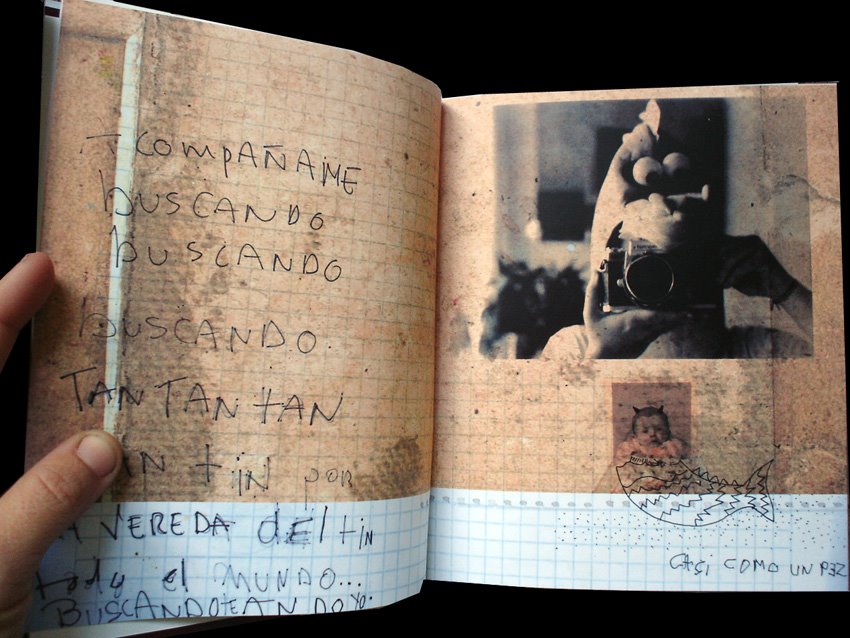 ACOMPAÑAME
buSCANDO
buSCANDO
buSCANDO.
TANTAN tAN
tin por
VEREDA dEl tin
tody el MUNDO...
BUSCANDOTEAN DO yo.
CASI COMO UN PEZ